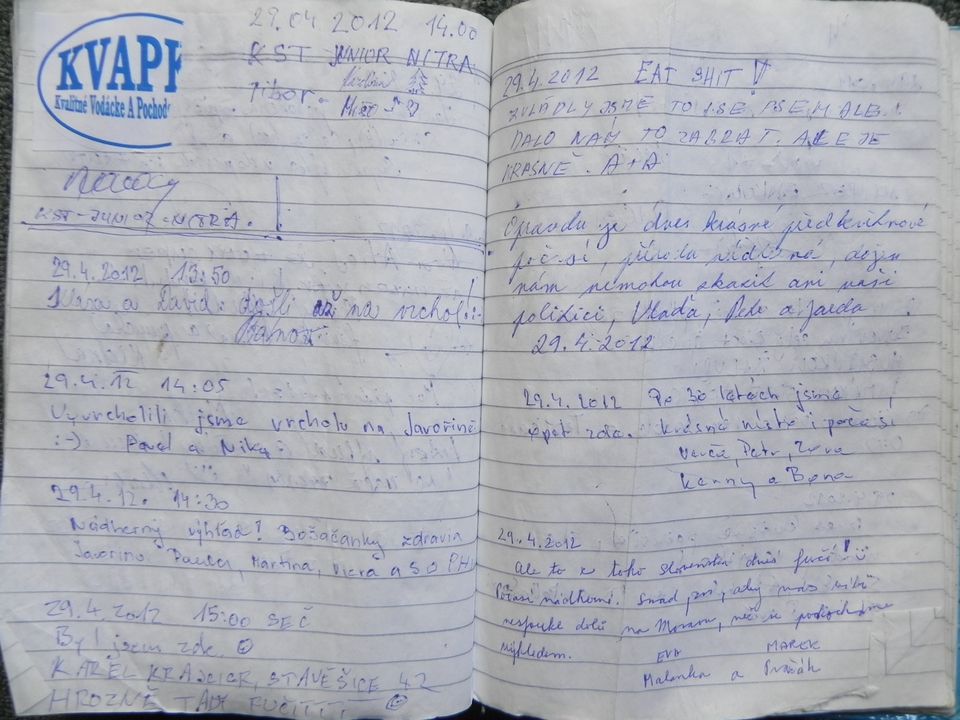 29.04 2012 14.00
KST JUNIOR NITRA
KVAP
Kvalitné Vodácke A Pochod
Tibor
KST-JUNIOR-NITRA.
29.4.2012 13:50
a David došli až na vrchol! :-)
29.4.12 14:05
Vyvrcholili jsme vrcholu na Javořině
:-) Pavel a Nika
29.4.12. 14:30
Nádherný výhľad! Bošačanky zdravia
Javorinu. Paula, Martina, Viera a SOPHI
29.4.2012 15:00 SEČ
Byl jsem zde ☺
KAREL KRAJCICR, STAVĚŠICE 42
HROZNĚ TADY FUČÍ!!!! ☺
29.4.2012 EAT SHIT
ZVLÁDLY JSME TO I SE PSEM ALE
DALO NÁM TO ZABRAT. ALE JE
KRÁSNĚ. A+A
Opravdu je dnes krásné
počasí, příroda nádherná, dojem
nám nemohou zkazit ani naši
politici, Vlaďa, Petr a Jarda
29.4.2012
29.4.2012 Po 30 letech jsme
opět zde. Krásné místo i počasí
Verča, Petr,
Kenny a Bona
29.4.2012
Ale to z toho slovenska dnes fučí!
Počasí nádherné! Snad jen, aby nás
dolů na Moravu, než se pokocháme
výhledem.
EVA MAREK
Malenka a